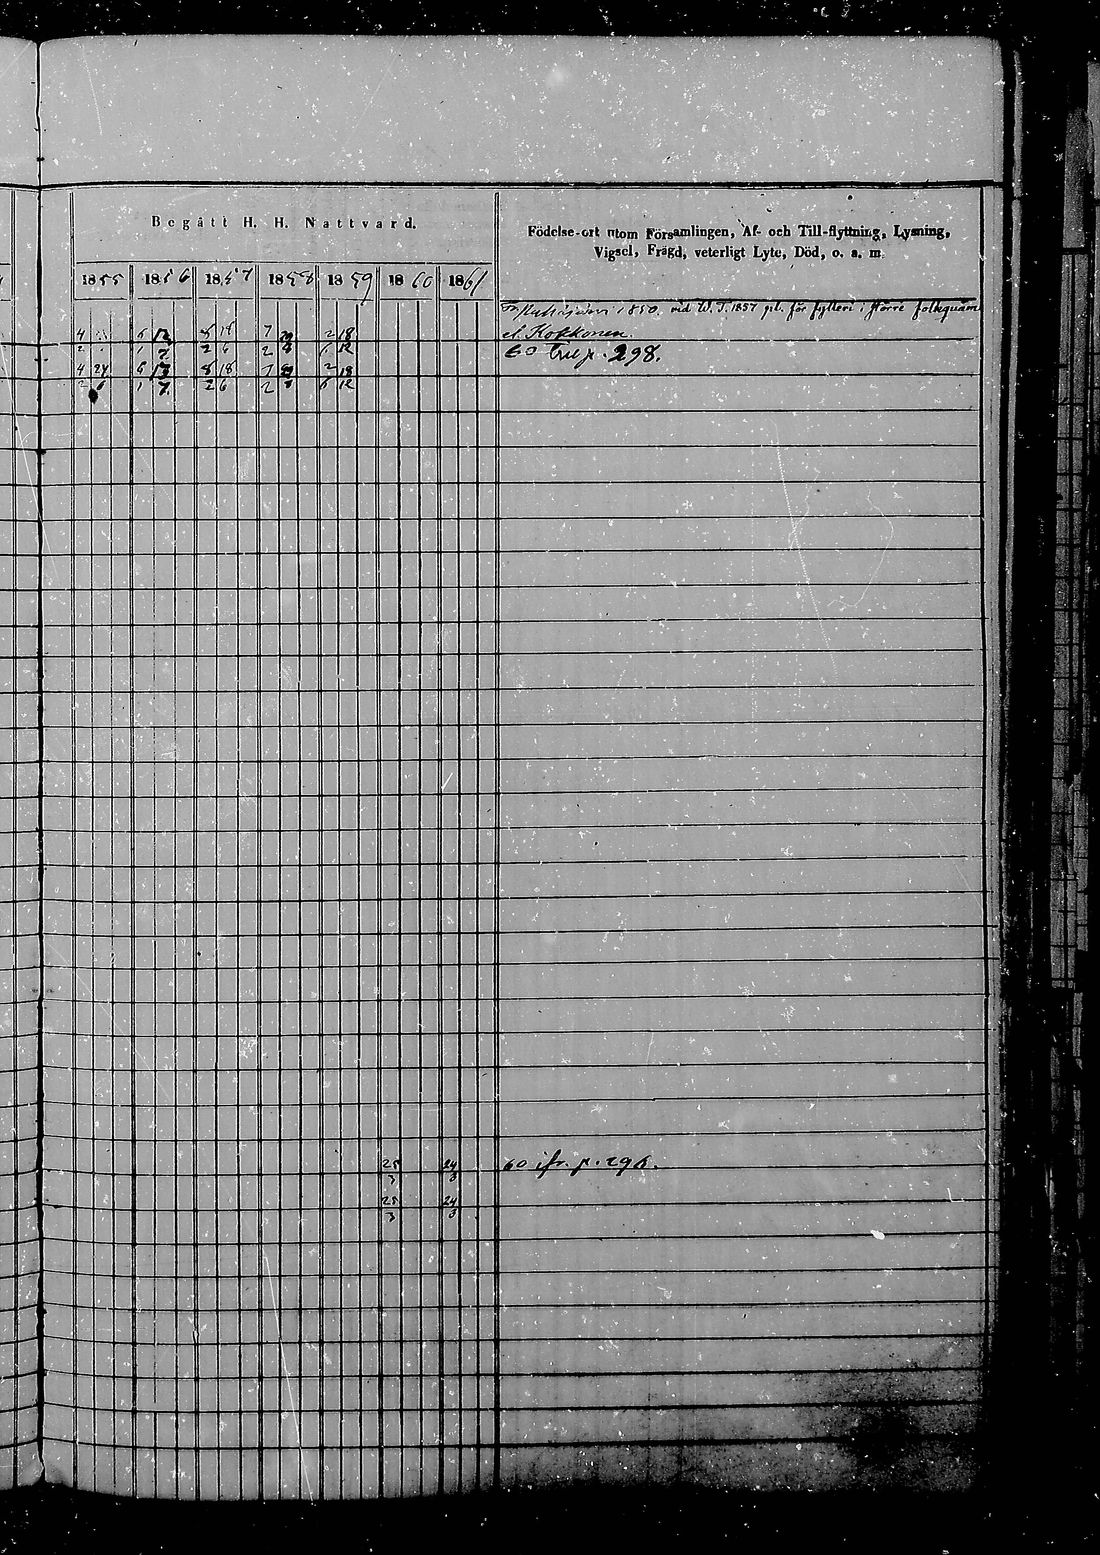 Begått H. H. Nattvard.
Födelse-ort utom Församlingen, Af- och Till-flyttning, Lysning,
Vigsel, Frägd, veterligt Lyte, Död, o. a. m.
1855 1856 1857 1858 1859 1860 1861
1850, vid W. T. 1857 pl. för fylleri i större folksam
4 6 8 18 7 2 18 el. Kokkonen
2 1 7 2 6 2 6 12 60 p. 298.
4 24 6 8 18 7 2 18
2 6 1 7 2 6 2 6 12
25 24 60 ifr. p. 296.
3 3
25 24
3 3